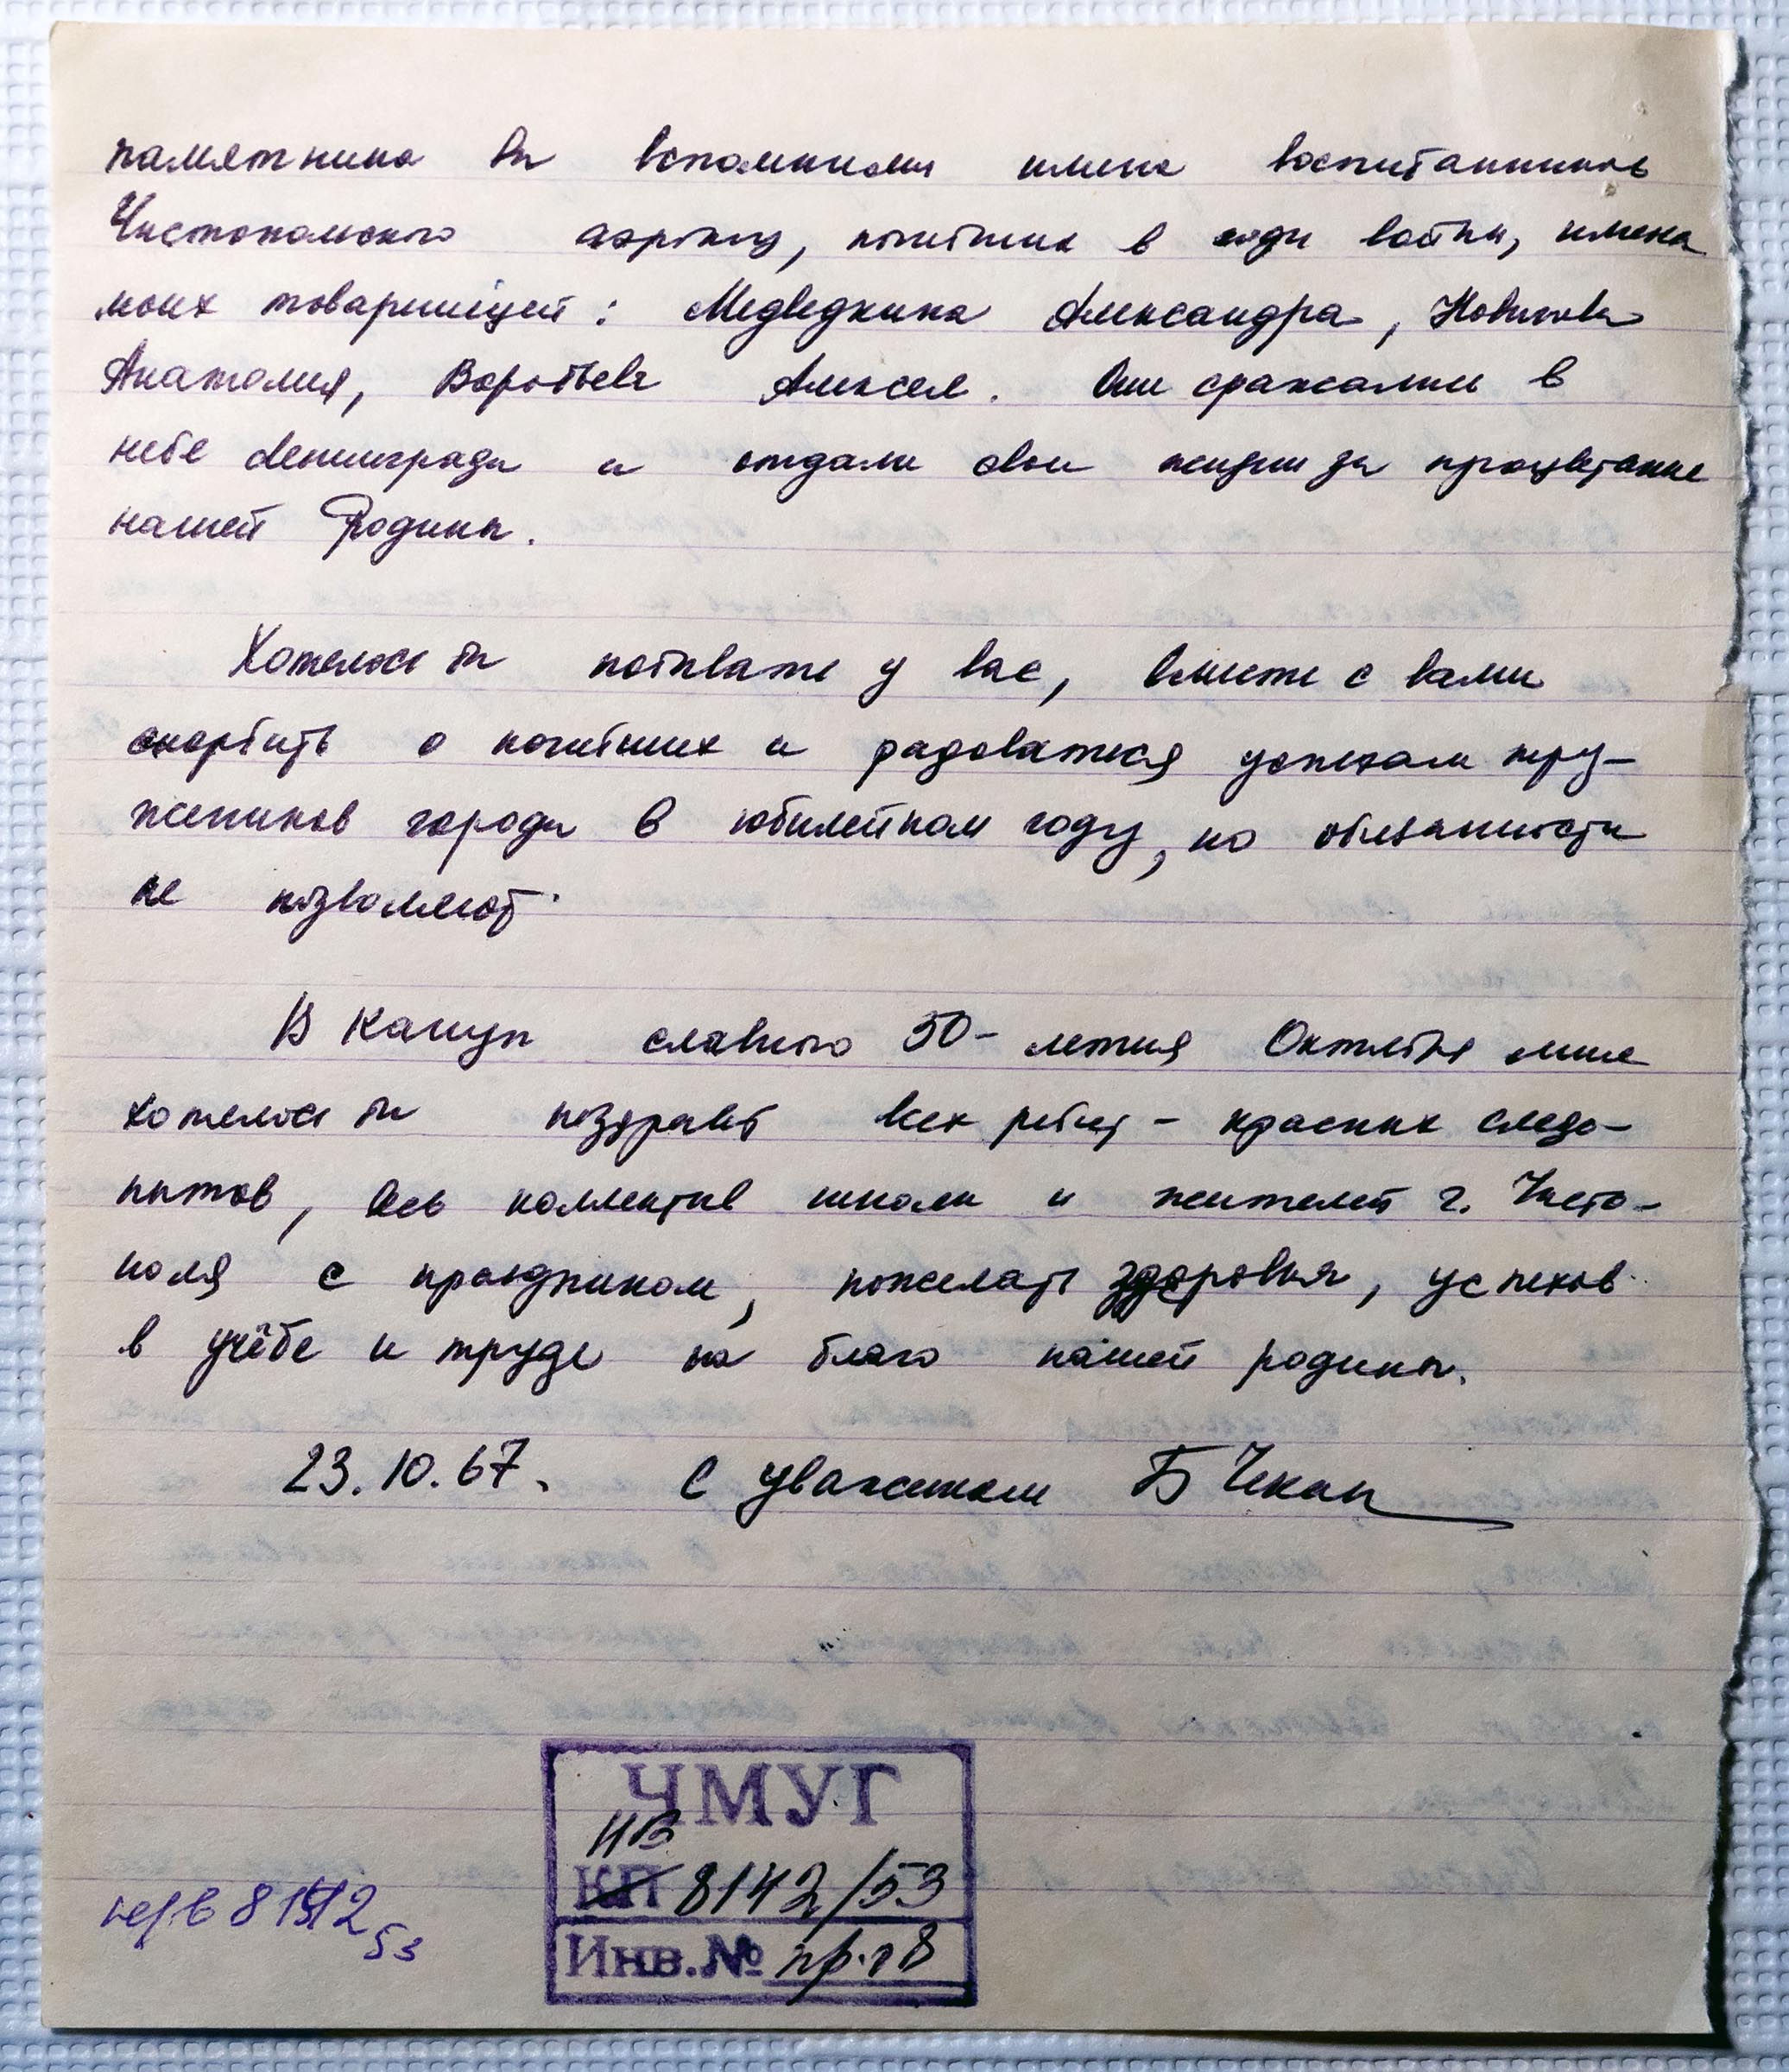 памятника вы вспомнили имена воспитанников
Чистопольского аэроклуба, погибших в годы войны, имена
моих товарищей: Медведкина Александра, Новикова
Анатолия, Воробьева Алексея. Они сражались в
небе Ленинграда и отдали свои жизни за процветание
нашей Родины.
Хотелось бы побывать у вас, вместе с вами
скорбить о погибших и радоваться успехам тру-
жеников города в юбилейном году, но обязанности
не позволяют.
В канун славного 50-летия Октября мне
хотелось бы поздравить всех ребят - красных следо-
пытов, весь коллектив школы и жителей г. Чисто-
поля с праздником, пожелать здоровья, успехов
в учёбе и труде на благо нашей родины.
23.10.67. С уважением Б Чекин
ЧМУГ
НВ
КП 8142/53
Инв.№ пр.28
8142
53